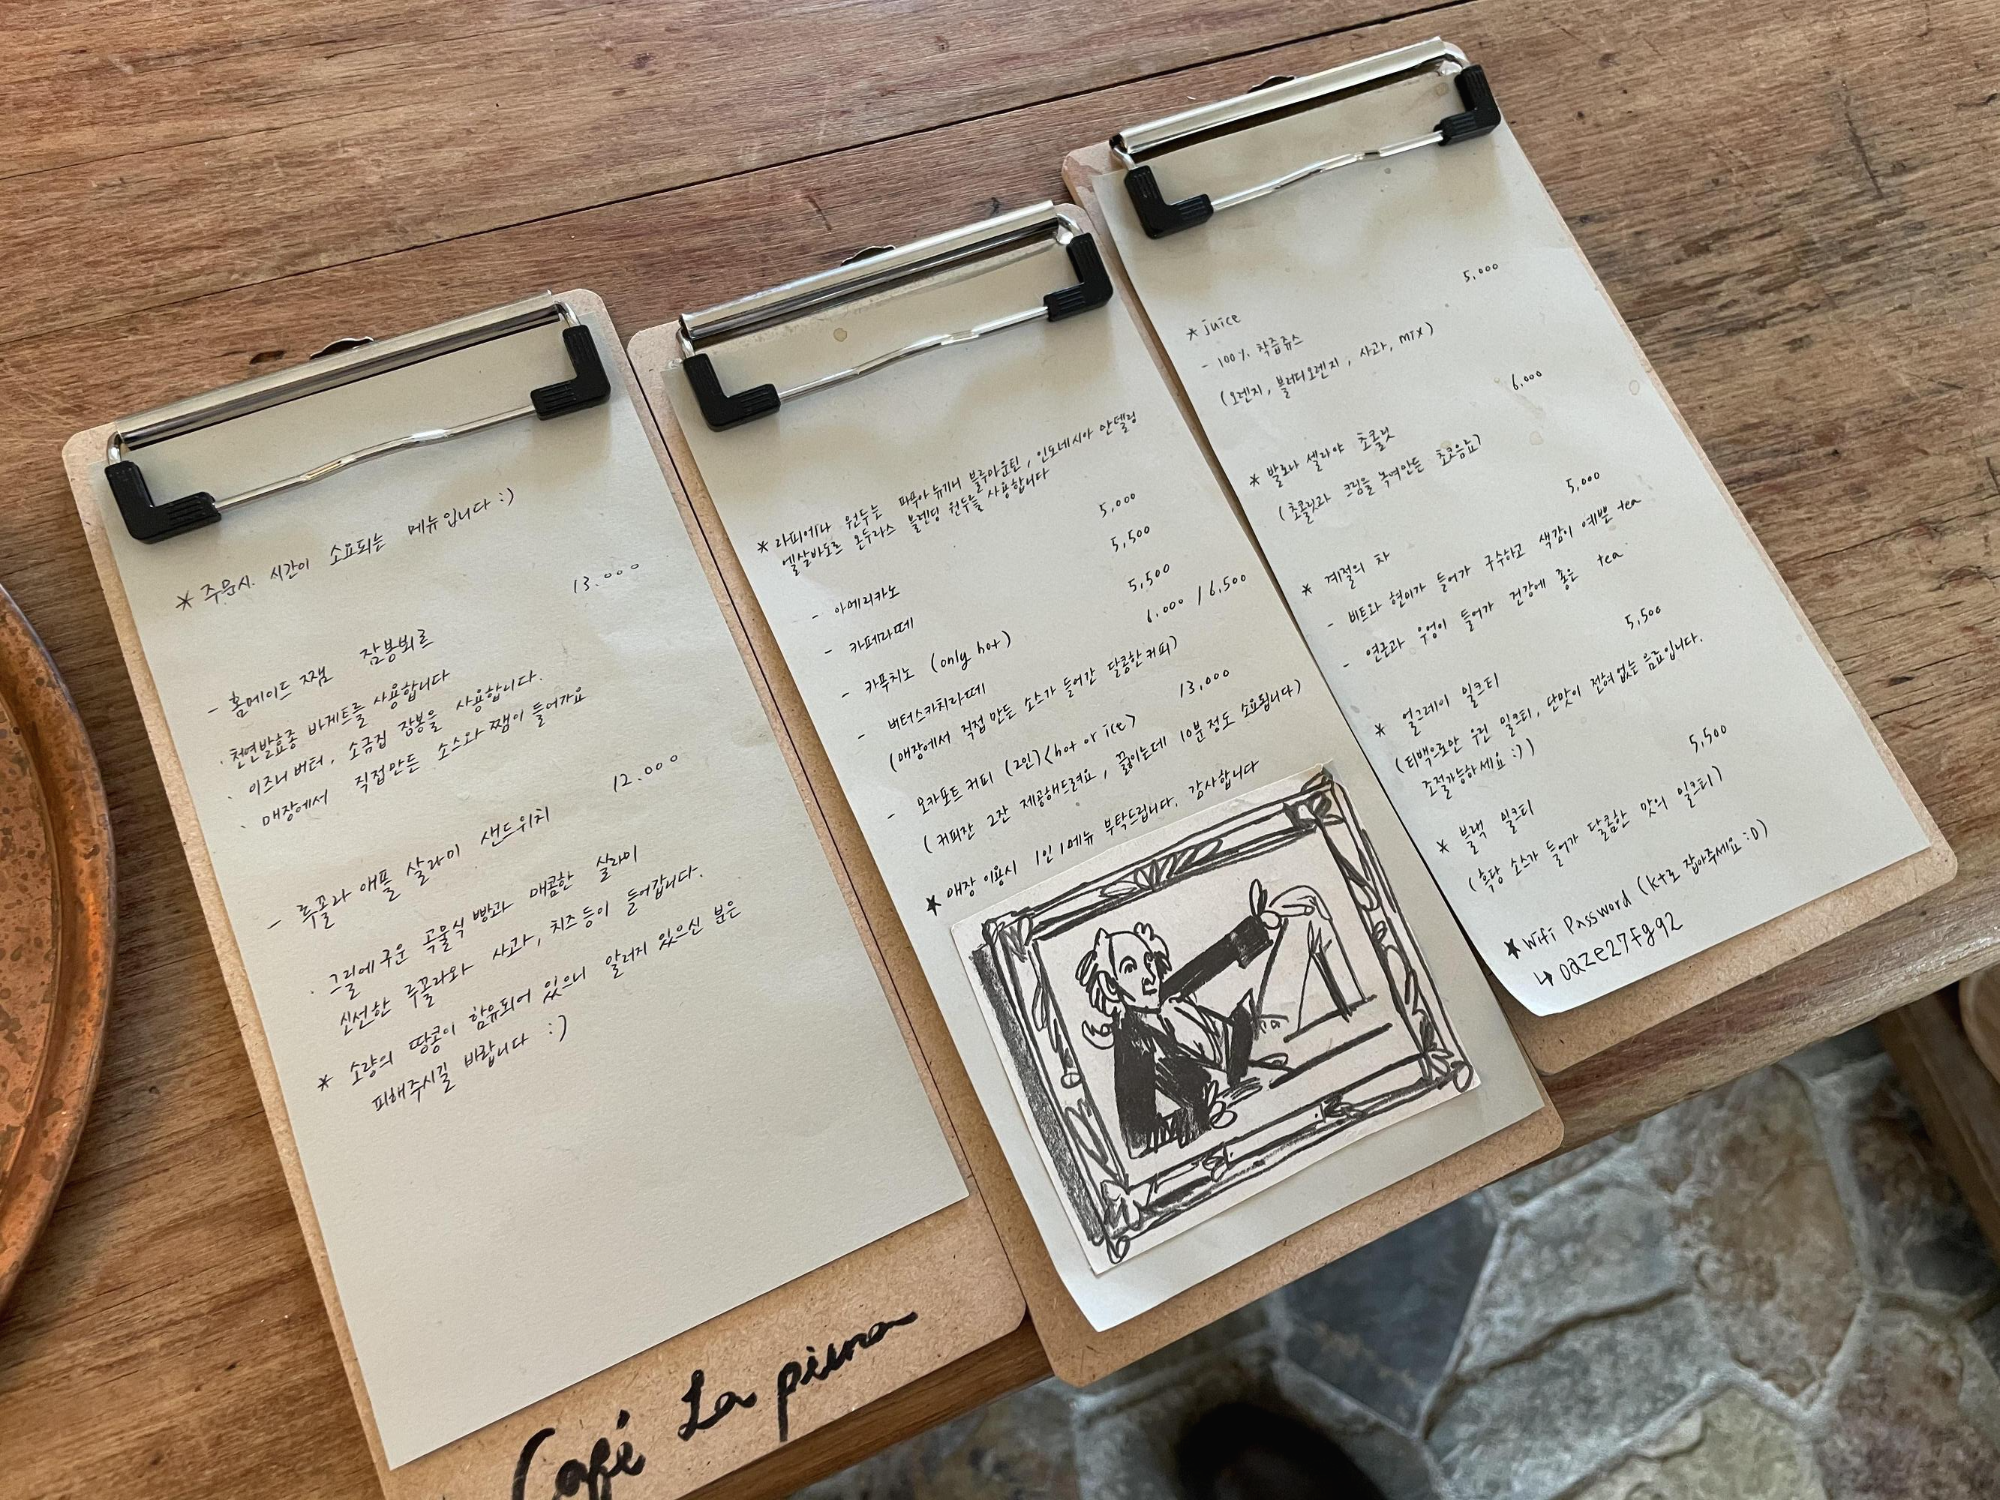 * 주문시. 시간이 소요되는 메뉴입니다 :)
13.000
- 홈메이드 쨈 잠봉뵈르
. 천연발효종 바게트를 사용합니다
. 이즈니 버터, 소금집 잠봉을 사용합니다.
. 매장에서 직접만든 소스와 쨈이 들어가요
12.000
- 루꼴라 애플 살라미 샌드위치
. 그릴에 구운 곡물식빵과 매콤한 살라미
신선한 루꼴라와 사과, 치즈 등이 들어갑니다.
* 소량의 땅콩이 함유되어 있으니 알러지 있으신 분은
피해주시길 바랍니다 :)
Café La piena
* 라피에나 원두는 파푸아 뉴기니 블루마운틴, 인도네시아 만델링
엘살바도르 온두라스 블렌딩 원두를 사용합니다
- 아메리카노 5,000
- 카페라떼 5,500
- 카푸치노 (only hot) 5,500
- 버터스카치라떼 6.000 / 6,500
(매장에서 직접 만든 소스가 들어간 달콤한 커피)
- 모카포트 커피 (2인)<hot or ice> 13,000
(커피잔 2잔 제공해드려요, 끓이는데 10분 정도 소요됩니다)
* 매장 이용시 1인 1메뉴 부탁드립니다. 감사합니다
* juice 5,000
- 100% 착즙쥬스
(오렌지, 블러디오렌지, 사과, mix)
* 발로나 셀라야 초콜릿 6.000
(초콜릿과 크림을 녹여만든 초코음료)
* 계절의 차 5,000
- 비트와 현미가 들어가 구수하고 색감이 예쁜 tea
- 연근과 우엉이 들어가 건강에 좋은 tea
* 얼그레이 밀크티 5,500
(티백으로만 우린 밀크티, 단맛이 전혀 없는 음료입니다.
조절가능하세요 :))
* 블랙 밀크티 5,500
(흑당 소스가 들어가 달콤한 맛의 밀크티)
* Wifi Password (kt로 잡아주세요 :D)
↳ oaze27fg92